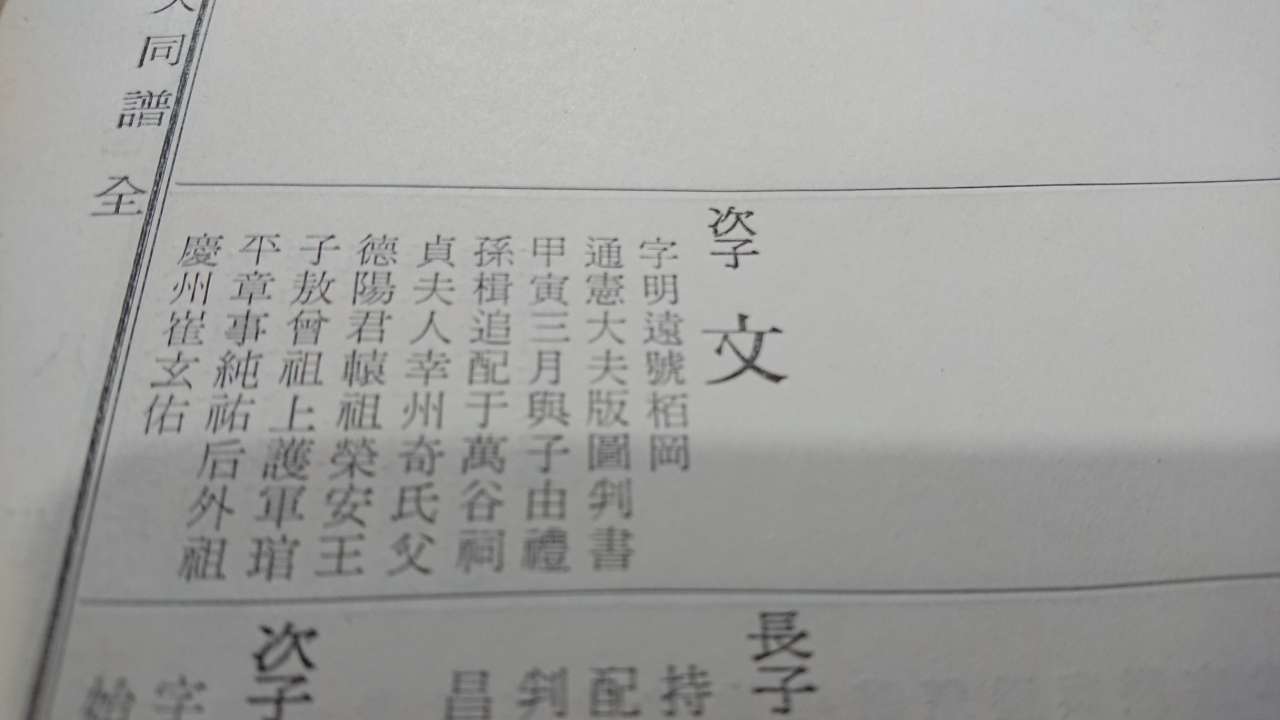 次子
文
字明遠號栢岡
通憲大夫版圖判書
甲寅三月與子由禮
孫楫追配于萬谷祠
貞夫人幸州奇氏父
德陽君轅祖榮安王
子敖曾祖上護軍琯
平章事純祐后外祖
慶州崔玄佑
同譜
全
長子
持
配
判
昌
次子
字
始